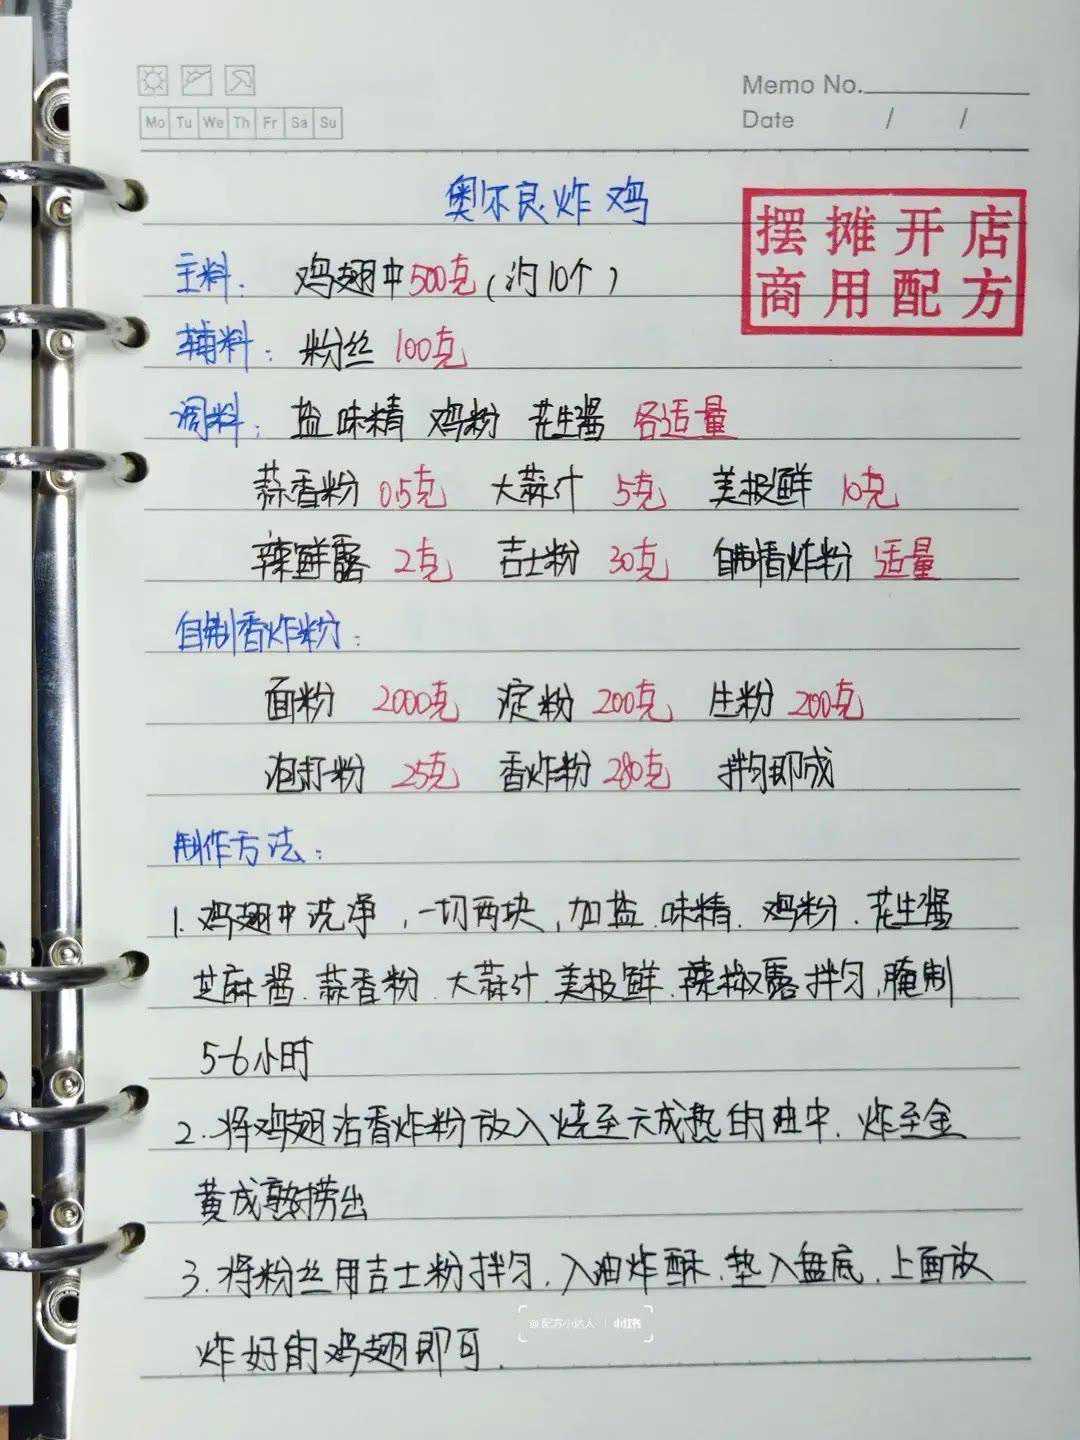 Memo No.
Mo Tu We Th Fr Sa Su
Date / /
奥尔良炸鸡
摆摊开店
商用配方
主料: 鸡翅中500克(约10个)
辅料: 粉丝 100克
调料: 盐 味精 鸡粉 花生酱 各适量
蒜香粉 0.5克 大蒜汁 5克 美极鲜 10克
辣鲜露 2克 吉士粉 30克 自制香炸粉 适量
自制香炸粉:
面粉 2000克 淀粉 200克 生粉 200克
泡打粉 25克 香炸粉 280克 拌匀即成
制作方法:
1.鸡翅中洗净,一切两块,加盐.味精.鸡粉.花生酱
芝麻酱.蒜香粉.大蒜汁.美极鲜.辣椒露拌匀,腌制
5-6小时
2.将鸡翅沾香炸粉放入烧至六成热的油中.炸至金
黄成熟捞出
3.将粉丝用吉士粉拌匀.入油炸酥.垫入盘底.上面放
炸好的鸡翅即可.
@配方小达人 | 小红书